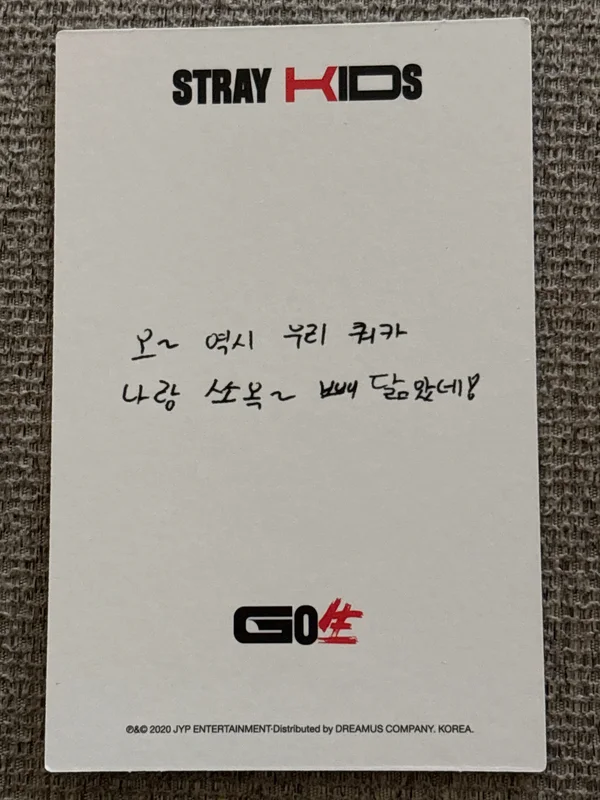 STRAY KIDS
오~ 역시 우리 쿼카
나랑 쏘옥~ 빼 닮았네!
GO生
℗&© 2020 JYP ENTERTAINMENT·Distributed by DREAMUS COMPANY. KOREA.